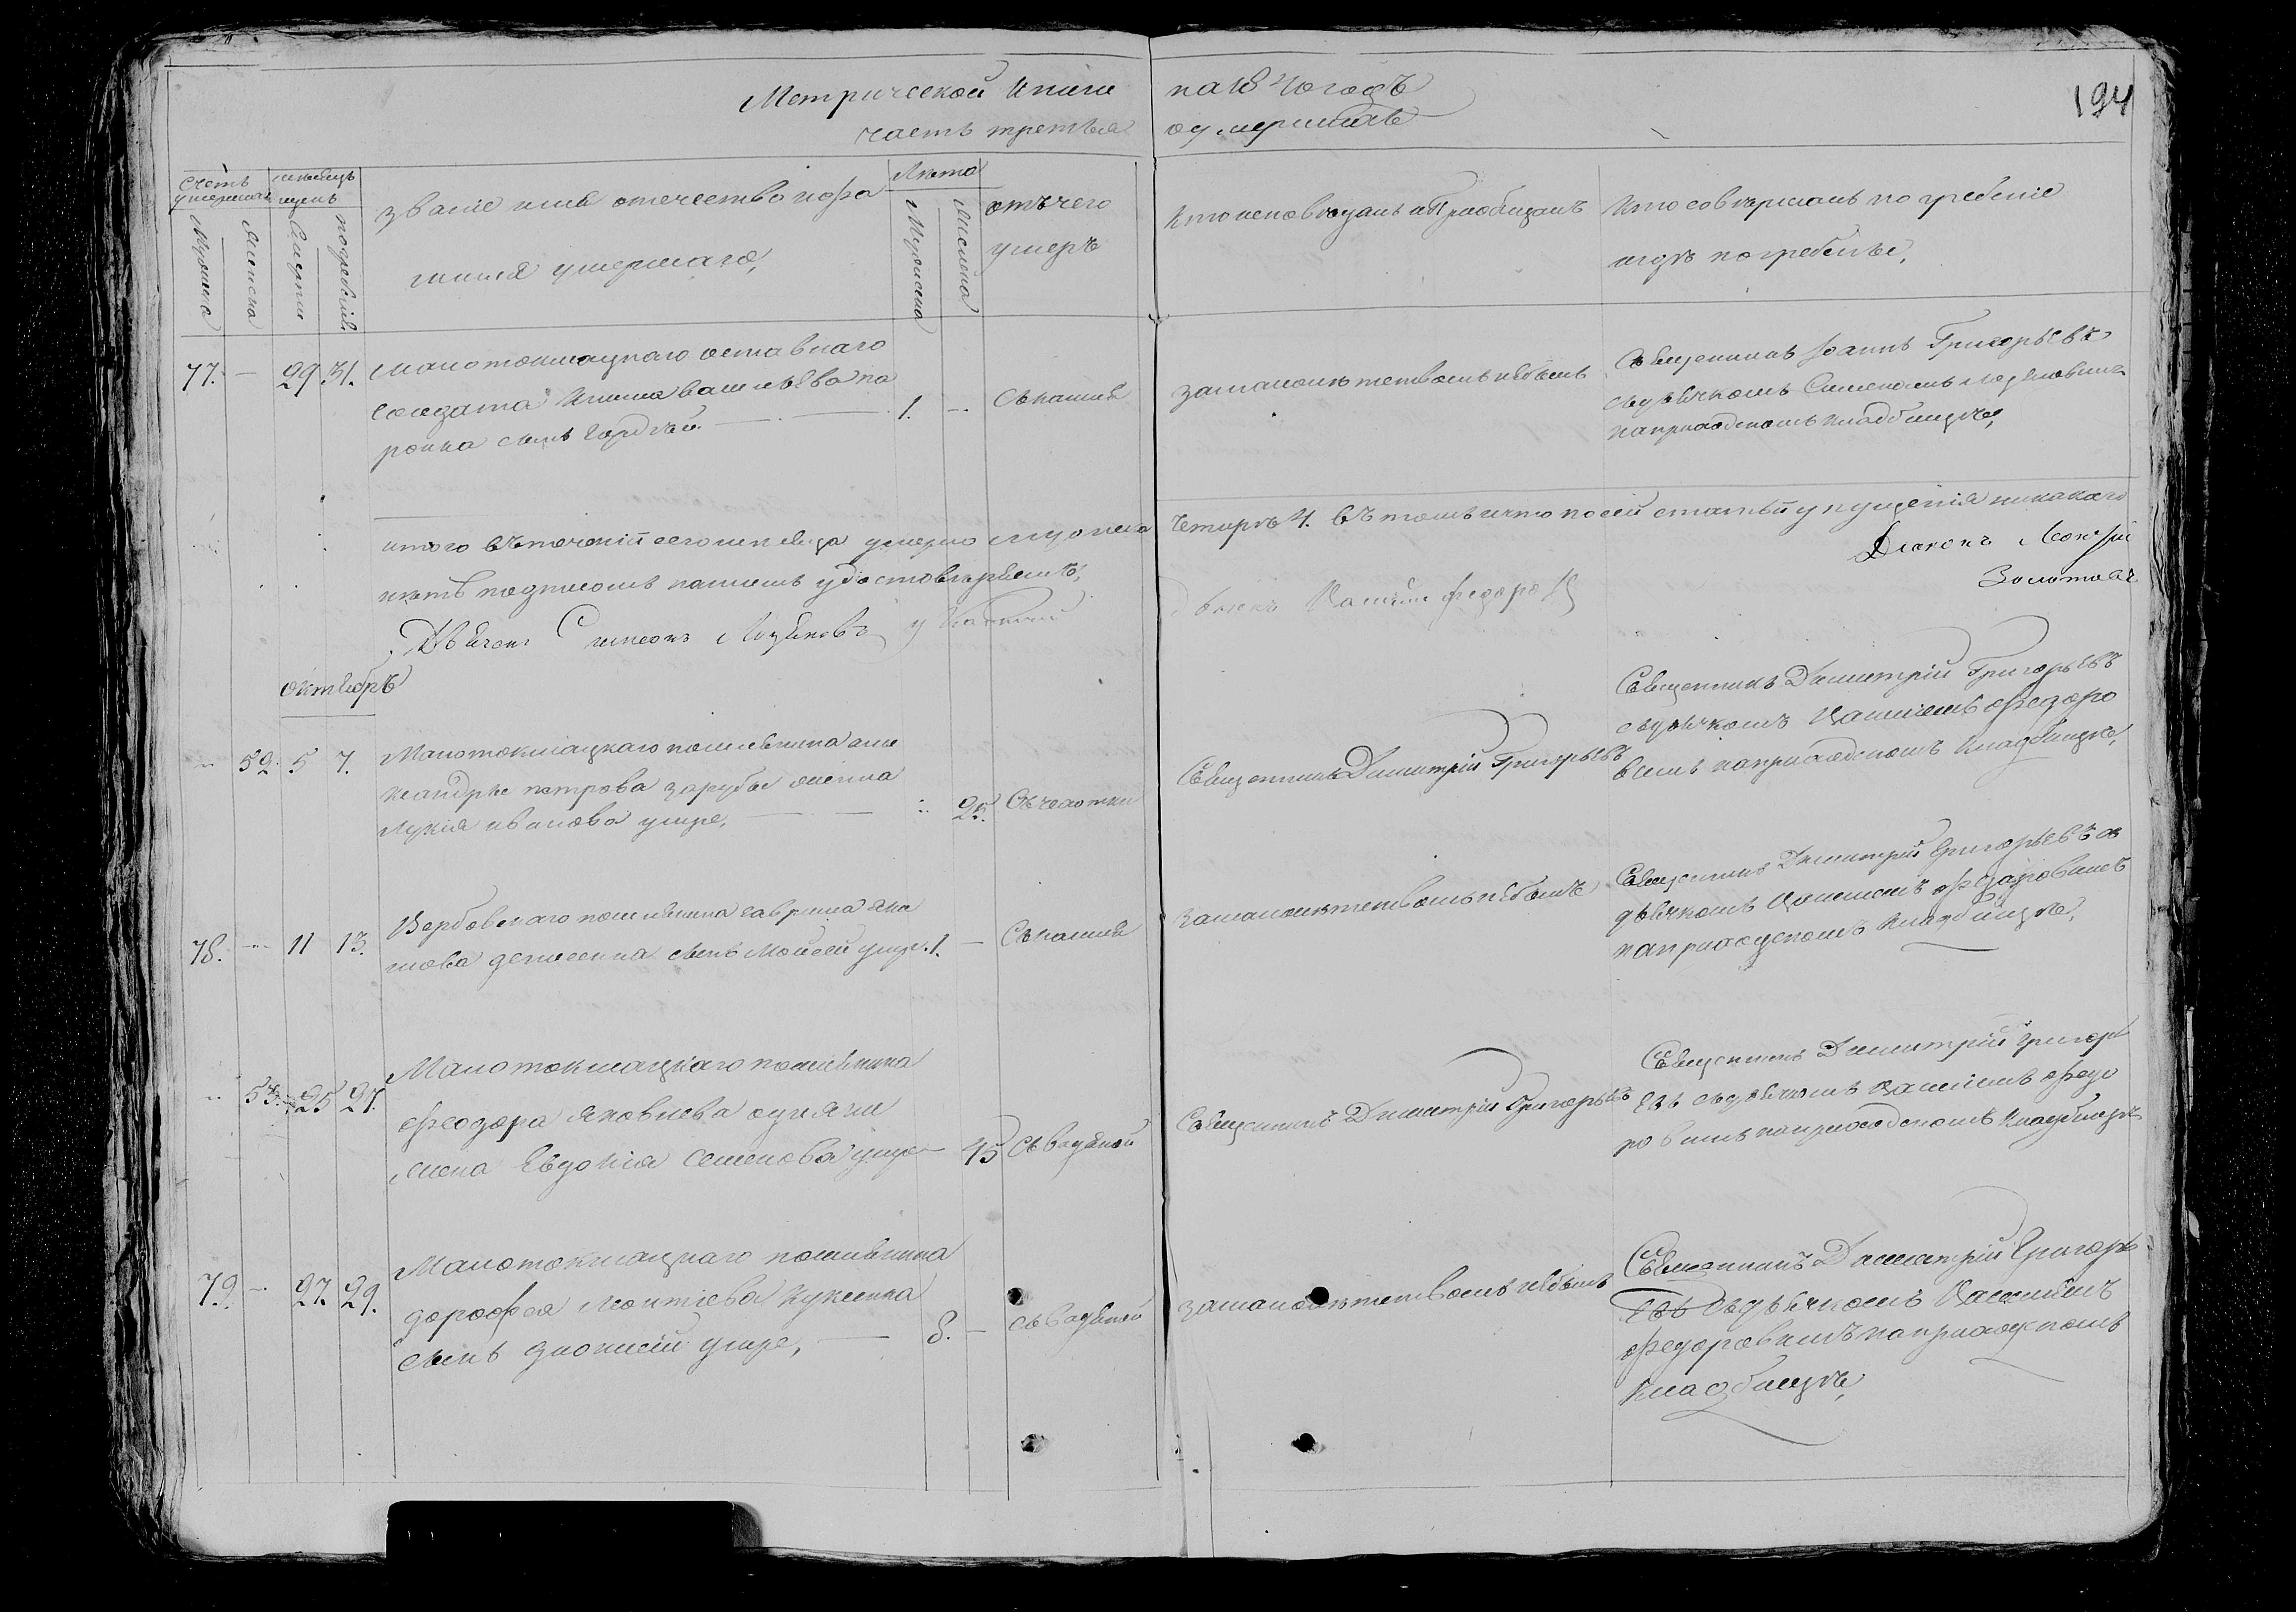 Метрической книги на 1840 годъ
часть третья о умершихъ
194
Счетъ умершихъ
мужеска
женска
месяцъ и день
смерти
погребения
звание имя отечество и фа
милия умершаго,
Лета
Мужеска
Женска
отъ чего
умеръ
кто исповедалъ и приобщалъ
кто совершалъ погребение
и где погребены,
77. — 29 31.
Малотокмацкаго оставнаго
солдата
сынъ Гордей — 1. —
Съ кашля
за малолетствомъ небылъ
Священникъ Іоаннъ Григорьевъ
съ дьячкомъ Симеономъ
на приходскомъ кладбище,
итого въ течении сего месяца умерло мужеска
женска четыре 4. въ томъ и что по сей статьи упущения никакого
нетъ подписомъ нашимъ удостоверяемъ,
Диаконъ
Золотаев
Дьячокъ Симеонъ
Федоров
октябрь
52. 5 7.
Малотокмацкаго поселянина але
ксандра петрова зарубы жена
Лукия иванова умре, — 25.
Съ чахотки
Священникъ Димитрий Григорьевъ
Священникъ Димитрий Григорьевъ
съ дьячкомъ федоро
вымъ на приходскомъ кладбище,
78. — 11 13.
Вербовскаго поселянина гаврила яки
мова денисенка сынъ Мойсей умре. 1. —
Съ кашля
за малолетствомъ небылъ
Священникъ Димитрий Григорьевъ съ
дьячкомъ федоровымъ
на приходскомъ кладбище,
53. 25 27.
Малотокмацкаго поселянина
феодора яковлева
жена Евдокия семенова умре — 45
Съ водяной
Священникъ Димитрий Григорьевъ
Священникъ Димитрий григорь
евъ съ дьячкомъ федо
ровымъ на приходскомъ кладбище
79. — 27. 29.
Малотокмацкаго поселянина
дорофея леонтиева куксенка
сынъ дионисий умре, — 8. —
съ водяной
за малолетствомъ небылъ
Священникъ Димитрий Григорь
евъ съ дьячкомъ
федоровымъ на приходскомъ
кладбище,